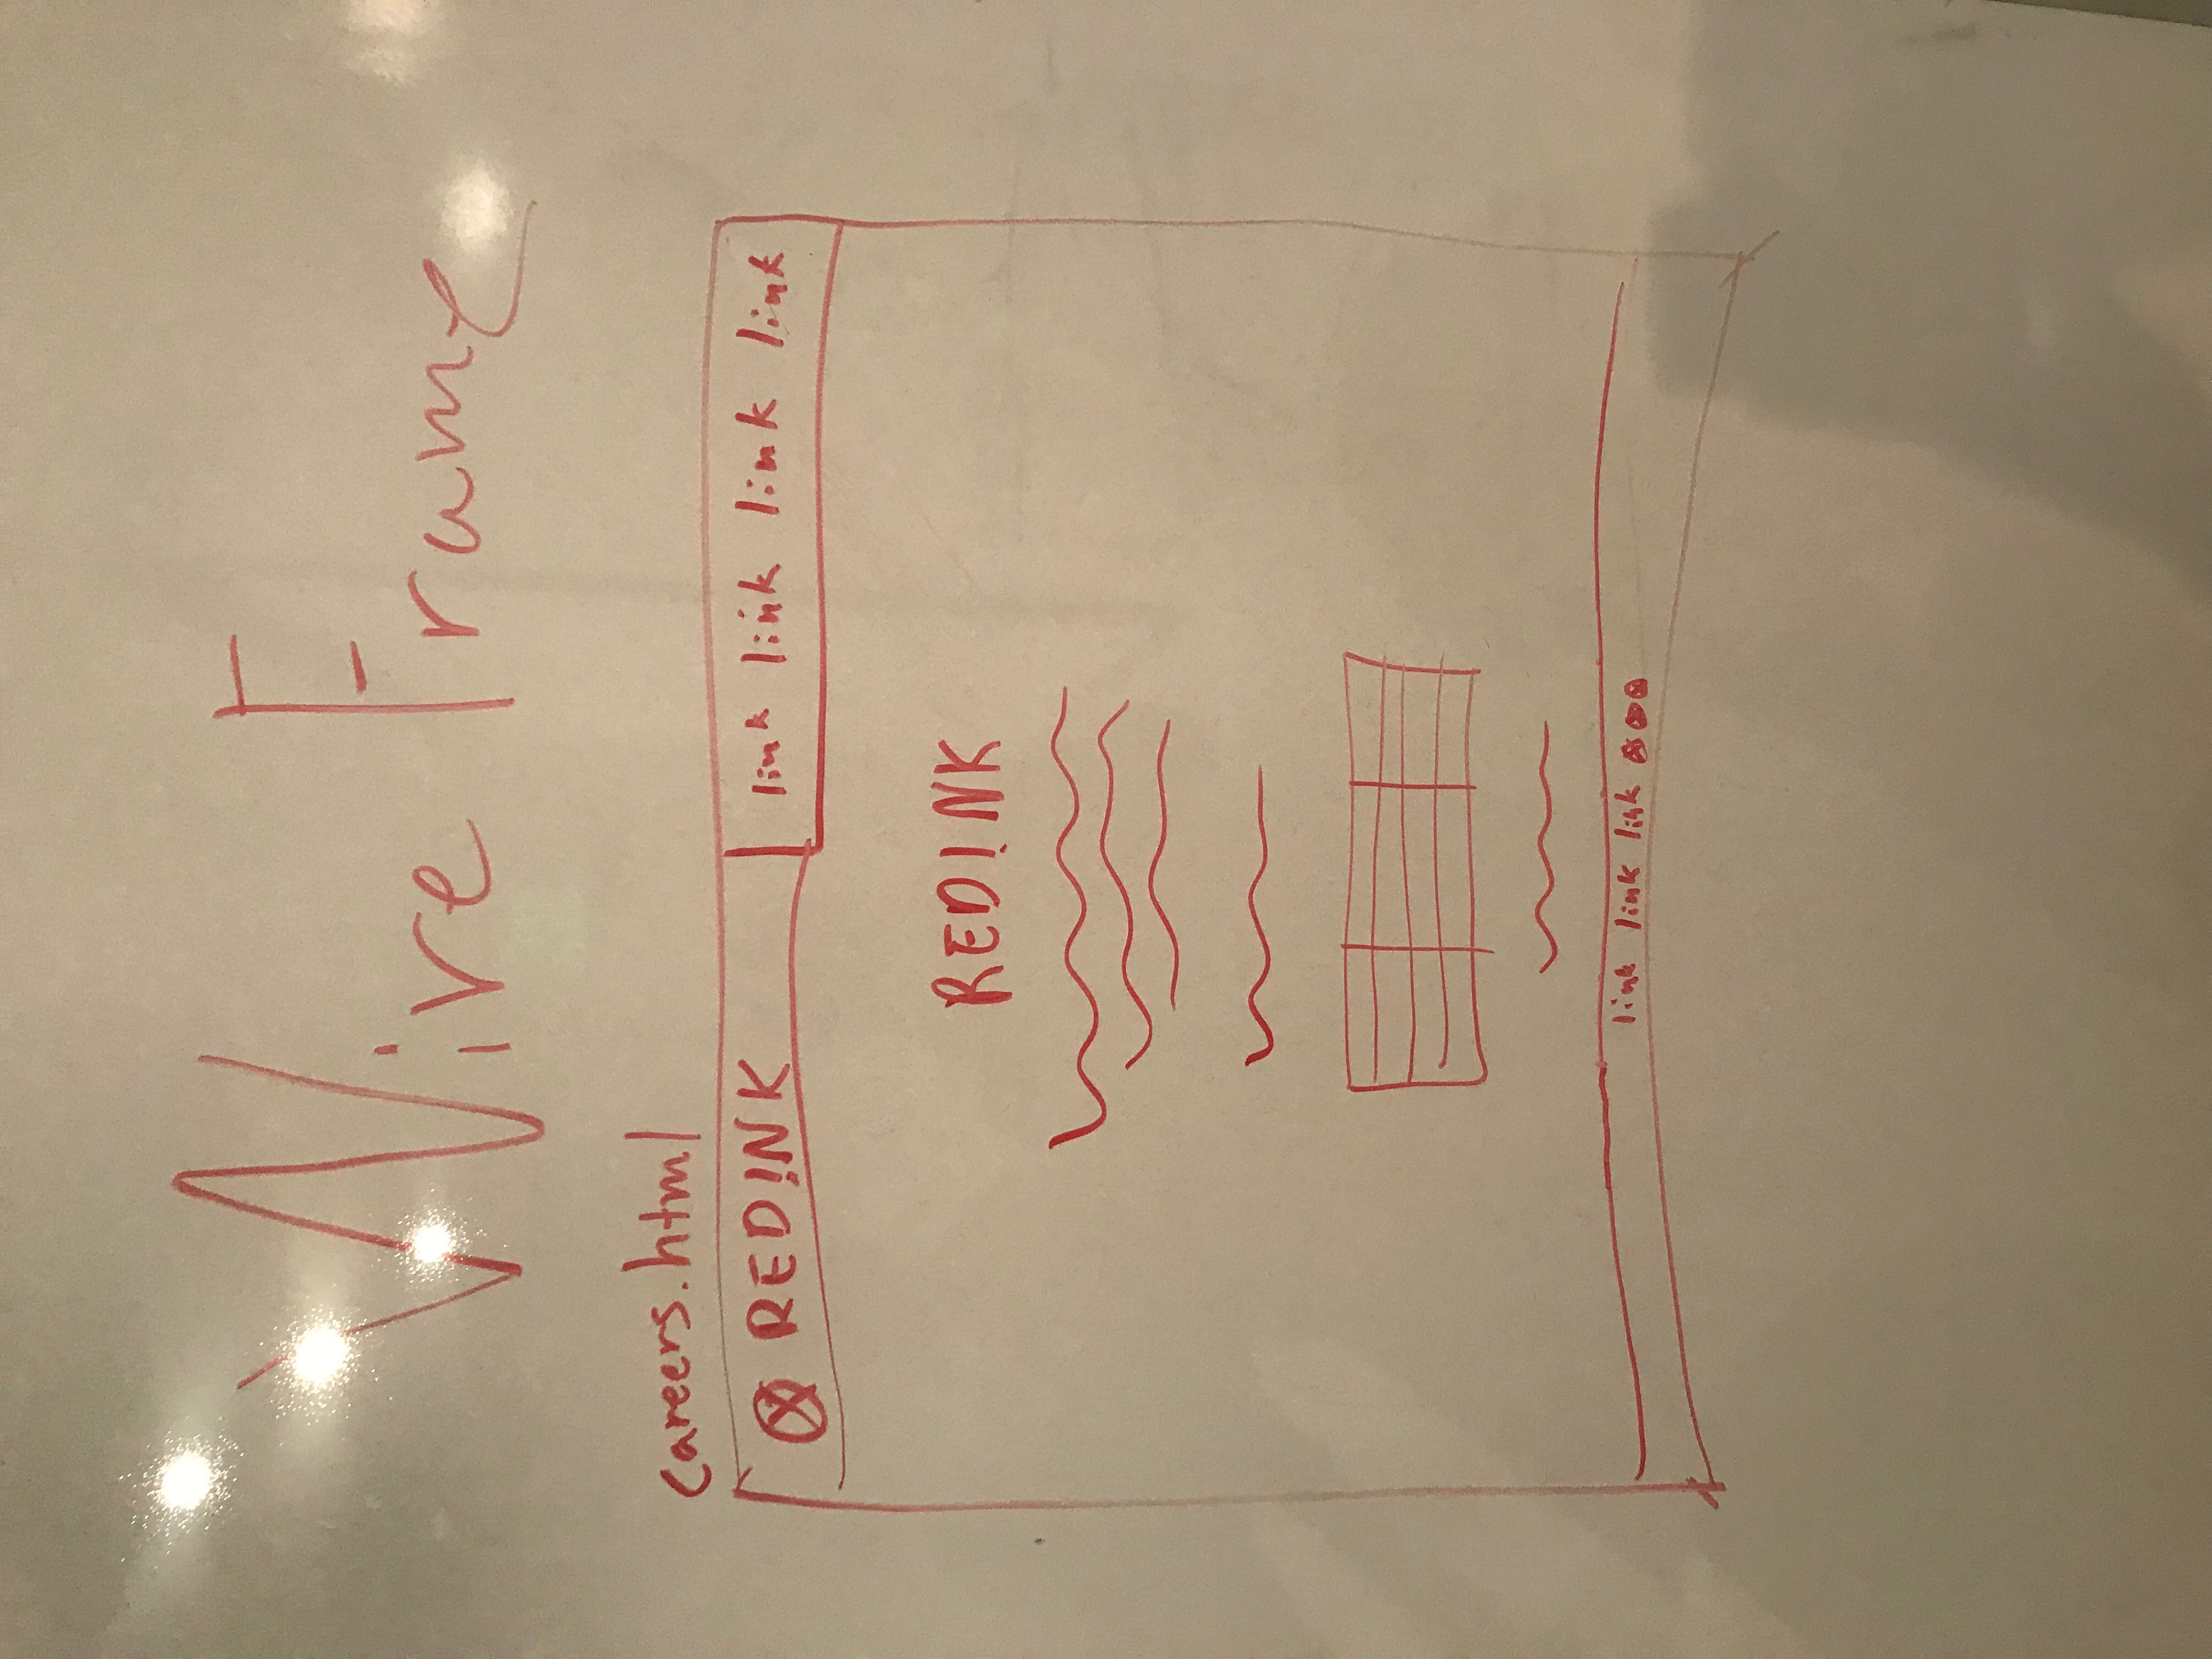 Wire Frame
careers.html
RED!NK link link link link
RED!NK
link link link